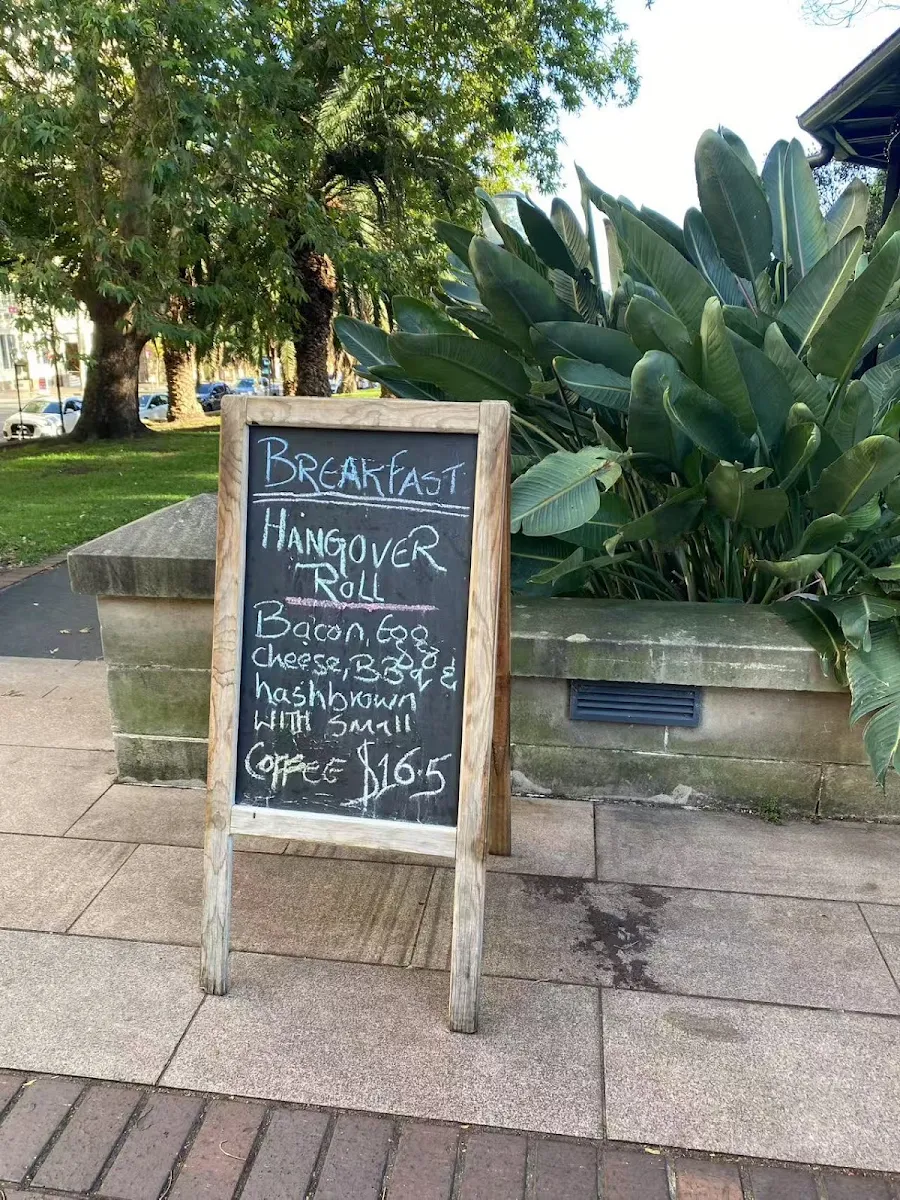 BREAKFAST
HANGOVER
ROLL
Bacon, Egg
cheese, BBq &
hashbrown
WITH Small
COFFEE $16.5